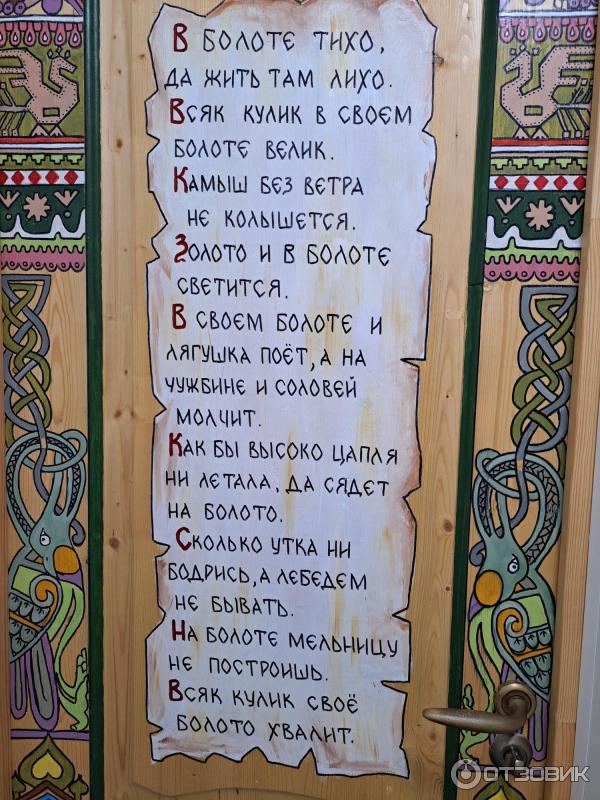 В болоте тихо,
да жить там лихо.
Всяк кулик в своем
болоте велик.
Камыш без ветра
не колышется.
Золото и в болоте
светится.
В своем болоте и
лягушка поёт, а на
чужбине и соловей
молчит.
Как бы высоко цапля
ни летала, да сядет
на болото.
Сколько утка ни
бодрись, а лебедем
не бывать.
На болоте мельницу
не построишь.
Всяк кулик своё
болото хвалит.
ОТЗОВИК